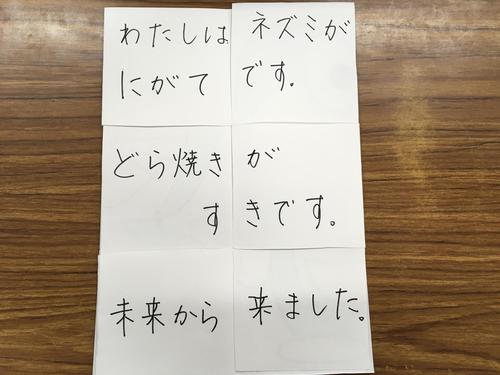 わたしは ネズミが
にがて です。
どら焼き が
す きです。
未来から 来ました。